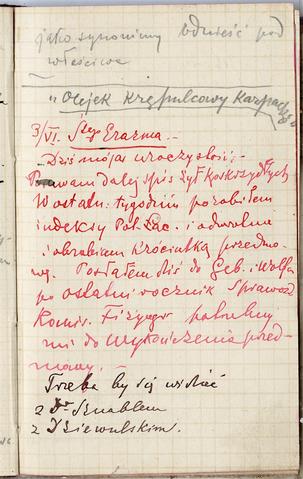 jako synonimy odnieść pod
właściwe
„Olejek Krępulcowy Karpacki
3/VI. Śteo Erazma. —
Dziś moja uroczystość. —
dalej spis Żyłkoskrzydłych
W ostatn. tygodniu porobiłem
indeksy Pol. i odwrotne
i obrabiam króciutką przedmo-
wę. Posłałem dziś do Geb. i Wolffa
po ostatni rocznik Sprawozd
Komis. Fizyogr potrzebny
mi do wykończenia przed-
mowy. —
Trzeba by się widzieć
z Drem Sznablem
z Dziewulskim.